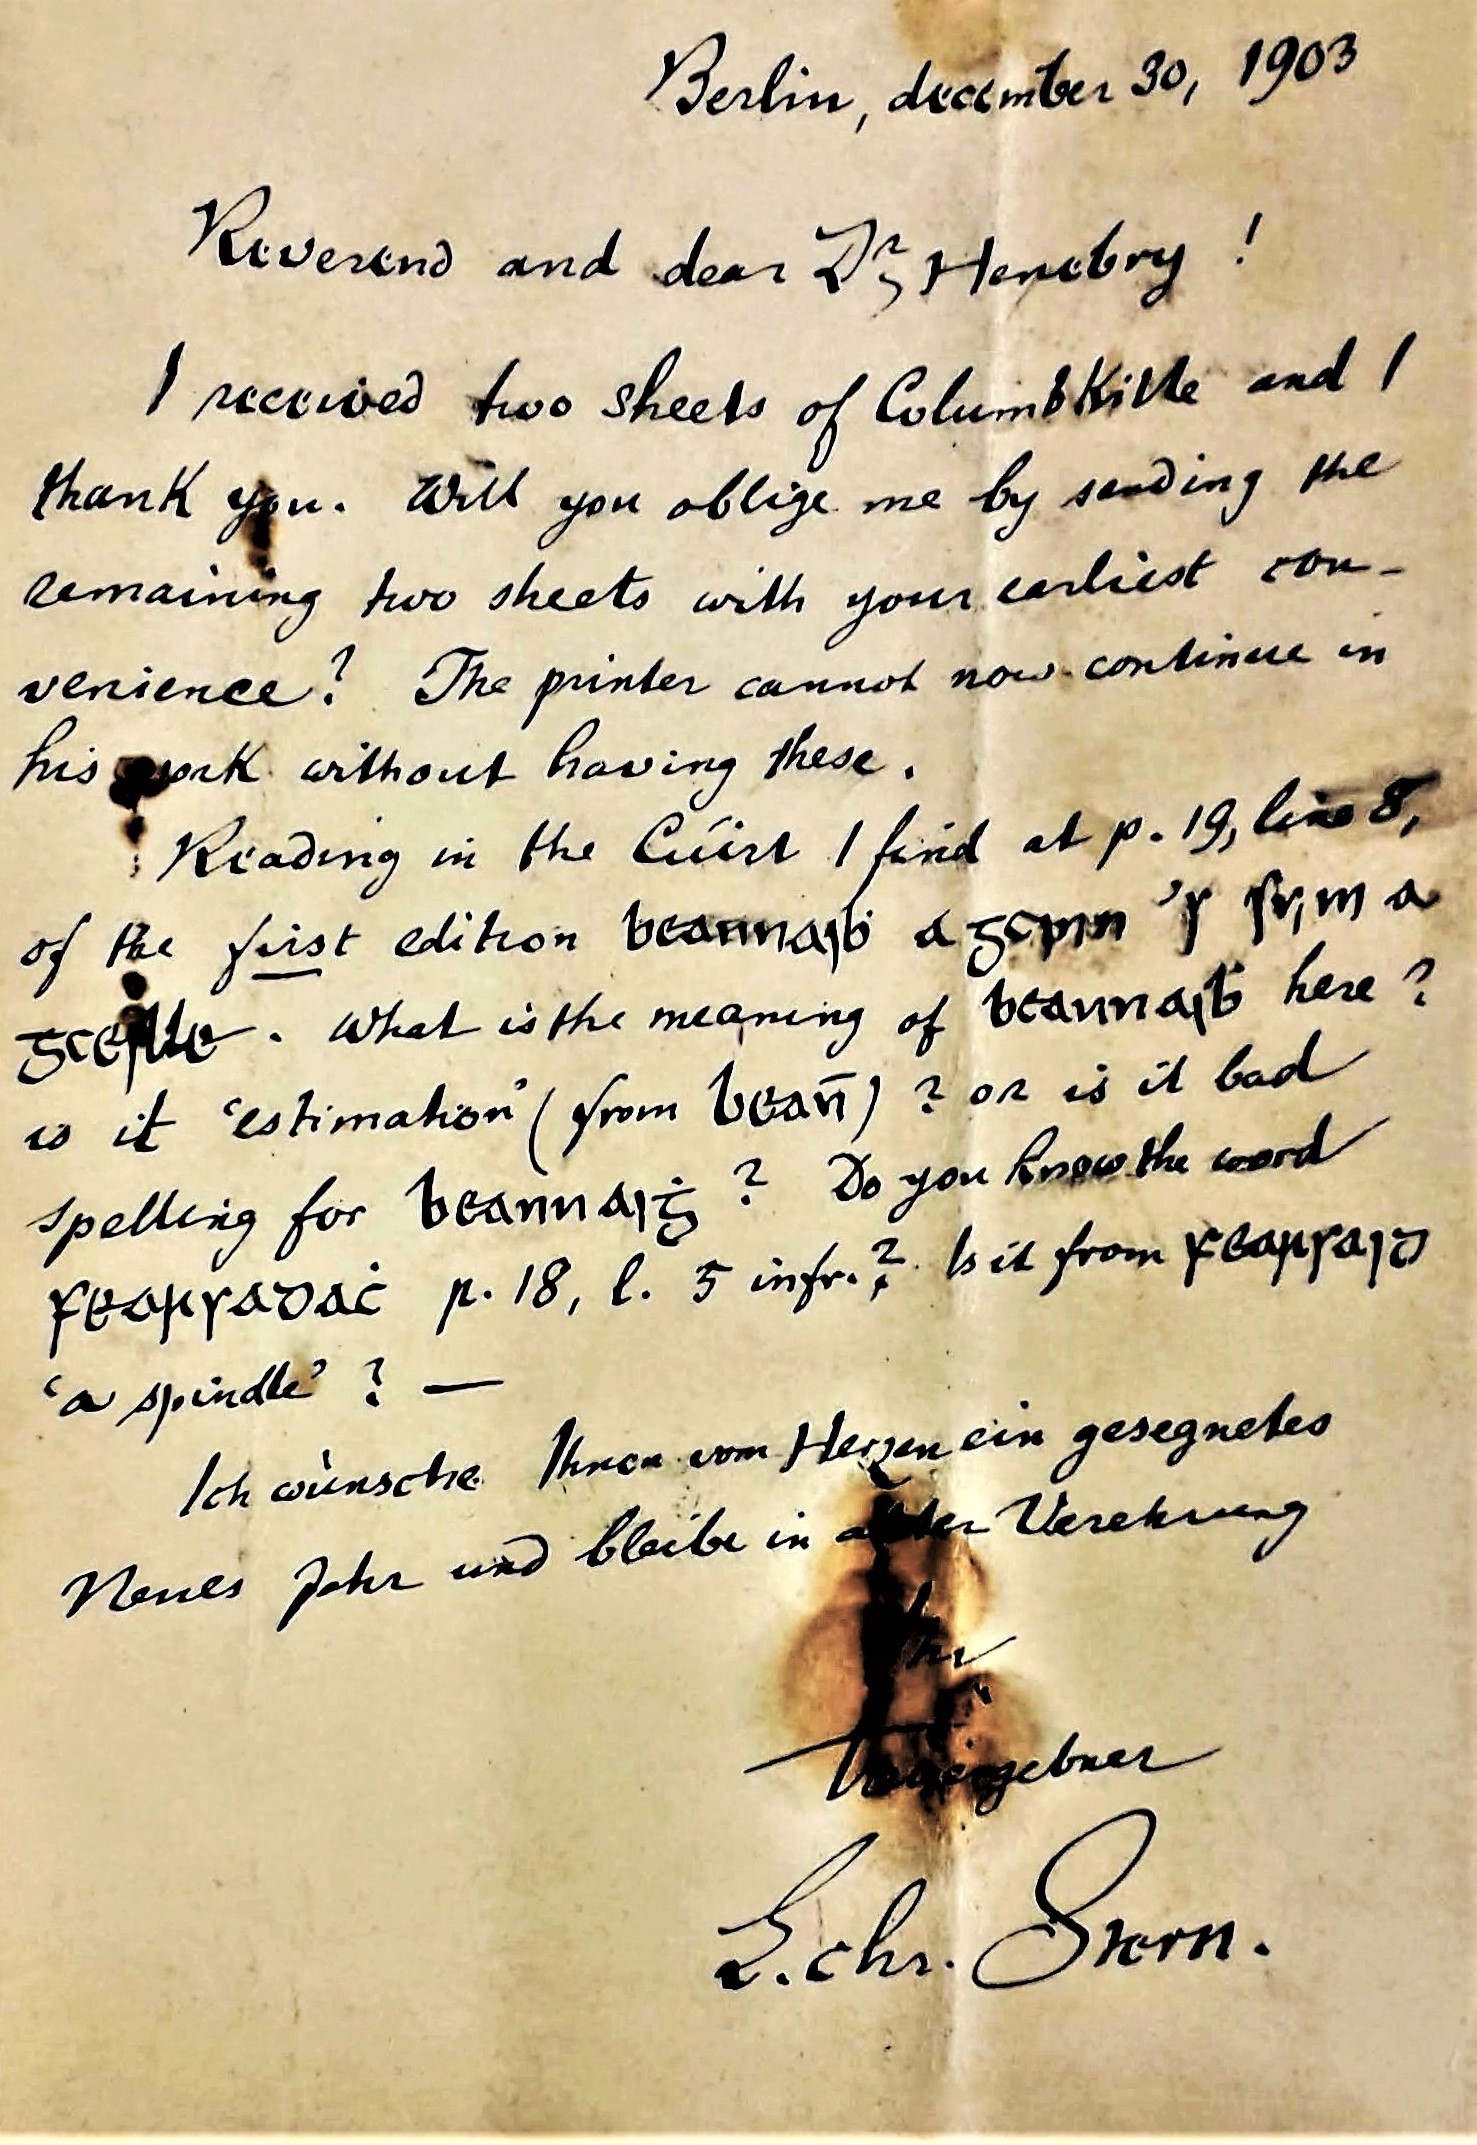 Berlin, december 30, 1903
Reverend and dear Dr Henebry!
I received two sheets of ColumbKille and I
thank you. Will you oblige me by sending the
remaining two sheets with your earliest con-
venience? The printer cannot now continue in
his work without having these.
Reading in the Cúirt I find at p. 19, line 8,
of the first edition beannaiḃ a gcinn 's
gceille. What is the meaning of beannaiḃ here?
is it 'estimation' (from bean̄)? or is it bad
spelling for beannaiġ? Do you know the word
fearsadaċ p. 18, l. 5 infr.? Is it from fearsaid
'a spindle'? —
Ich wünsche Ihnen vom Herzen ein gesegnetes
Neues Jahr und bleibe in alter Verehrung
Ihr
treuergebner
L. Chr. Stern.